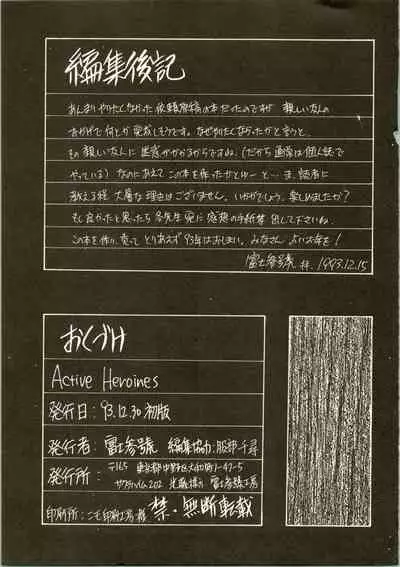 編集後記
あんまりやりたくなかった依頼原稿の本だったのですが 親しい友人の
おかげで何とか完成しそうです。なぜやりたくなかったかと言うと、
その親しい友人に迷惑がかかるからですね。(だから 通常は個人誌で
やっている) なのにあえてこの本を作ったかとゆーと… ま、読者に
教える程 大層な理由はございません。いかがでしょう。楽しめましたか?
もし良かったと思ったら 各先生宛に感想の手紙等 出して下さいね。
この本を作り、売って とりあえず93年はおしまい。みなさん よいお年を!
富士参號 拝. 1993.12.15
おくづけ
Active Heroines
発行日:93.12.30 初版
発行者:富士参號 編集協力:服部千尋
発行所:〒165 東京都中野区大和町1-47-5
202 富士参號工房
印刷所: 印刷工房 様 禁・無断転載